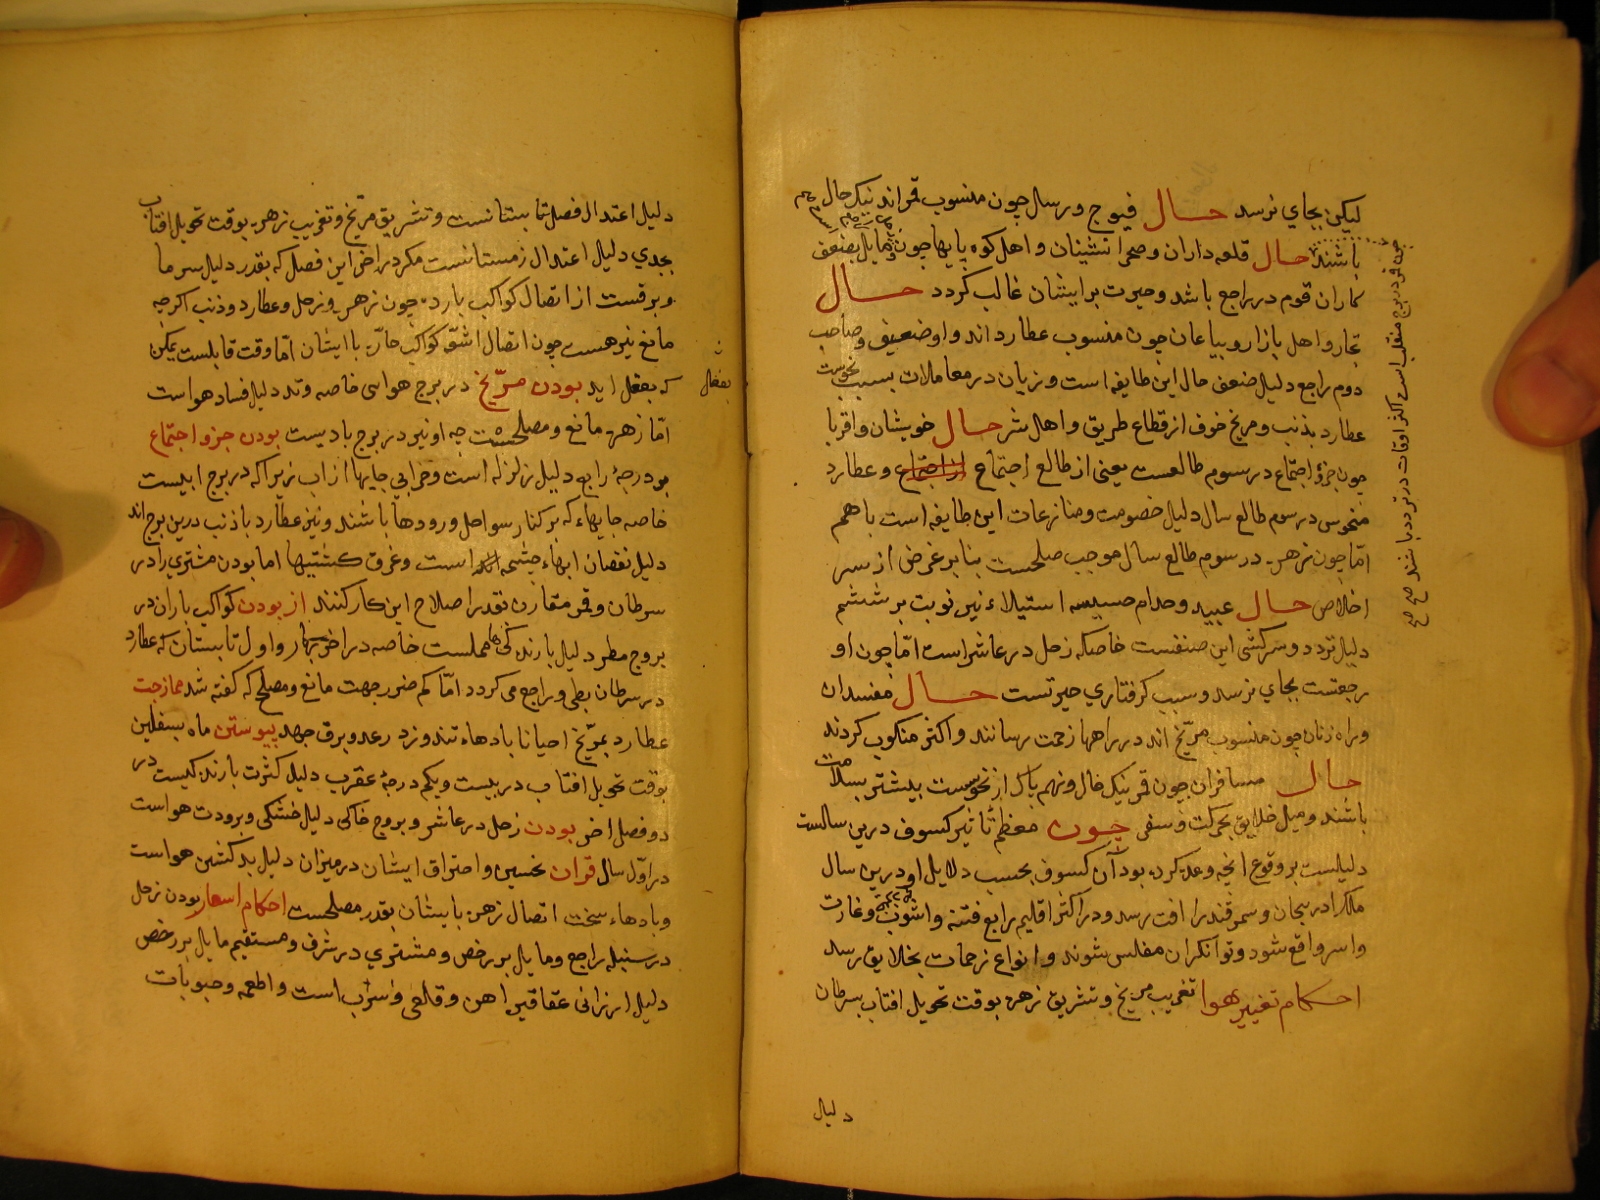 لیکن بجای نرسد حال فیوج و رسل چون منسوب قمراند نیک حال
باشند حال قلعه داران و صحرا نشینان و اهل کوه پایها چون و مایل بضعف
کماران قوم در راجع باشد و حیرت بر ایشان غالب کردد حال
تجار و اهل بازار و بیاعان چون منسوب عطارد اند و او ضعیف و صاحب
دوم راجع دلیل ضعف حال این طایفه است و زیان در معاملات بسبب نحوست
عطارد بذنب و مریخ خوف از قطاع طریق و اهل شر حال خویشان و اقربا
چون جزؤ اجتماع در سوم طالعست یعنی از طالع اجتماع و عطارد
منحوس در سوم طالع سال دلیل خصومت و منازعات این طایفه است با هم
امّا چون زهره در سوم طالع سال موجب صلحست بنا بر غرض از سر
اخلاص حال عبید و خدام حسیسه استیلاء نیی نوبت بر ششم
دلیل تردد و سرکشی این صنفست خاصکه زحل در عاشر است امّا چون او
رجعتست بجای نرسد و سبب کرفتاری حیرتست حال مفسدان
و راه زنان چون منسوب مرّیخ اند در راهها زحمت رسانند و اکثر منکوب کردند
حال مسافران چون قمر نیک حال و نهم پاک از نحوست بیشتر بسلامت
باشند و میل خلایق بحرکت و سفر چون معظم تاثیر کسوف درین سالست
دلیلست بر وقوع انچه وعده کرده بود آن کسوف بحسب دلایل او درین سال
ملک آذربیجان و سمرقند را افت رسد و در اکثر اقلیم رابع فتنه و اشوب و غارت
و اسر واقع شود و توانکران مفلس شوند و انواع زحمات بخلایق رسد
احکام تغییر هوا تغریب مریخ و تشریق زهره بوقت تحویل افتاب بسرطان
دلیل
چون قمر در برج منقلب است اکثر اوقات در تردد باشند صح صح
دلیل اعتدال فصل تابستانست و تشریق مرّیخ و تغریب زهره بوقت تحویل افتاب
بجدی دلیل اعتدال زمستانست مکر در اخر این فصل که بقدر دلیل سرما
و برفست از اتصال کواکب بارده چون زهره و زحل و عطارد و ذنب اکرچه
مانع نیز هست چون اتصال اشعّه کواکب حارّه با ایشان امّا وقت قابلست یمکن
که بفعل اید بودن مرّیخ در برج هوایی خاصه وتد دلیل فساد هواست
بفعل
امّا زهره مانع و مصلحست چه او نیز در برج بادیست بودن جزو اجتماع
بر درجهٔ رابع دلیل زلزله است و خرابی جایها از اب زیرا که در برج ابیست
خاصه جایهاء که بر کنار سواحل و رودها باشند و نیز عطارد با ذنب درین برج اند
دلیل نقصان ابهاء چشمه است و غرق کشتیها اما بودن مشتری را در
سرطان و قمر مقارن بقدر اصلاح این کار کنند از بودن کواکب باران در
بروج مطر دلیل بارندکی هملست خاصه در اخر بهار و اول تابستان که عطارد
در سرطان بطی و راجع می کردد امّا کم ضرر جهت مانع و مصلح که کفته شد ممازجت
عطارد بمرّیخ احیانا بادهاء تند وزد رعد و برق جهد پیوستن ماه بسفلین
بوقت تحویل افتاب در بیست و یکم درجهٔ عقرب دلیل کثرت بارندکیست در
دو فصل اخر بودن زحل در عاشر و بروج خاکی دلیل خشکی و برودت هواست
در اوّل سال قران نحسین و احتراق ایشان در میزان دلیل بد کشتن هواست
و بادهاء سخت اتصال زهره بایشان بقدر مصلحست احکام اسعار بودن زحل
در سنبله راجع و مایل بر رخص و مشتری در شرف و مستقیم مایل بر رخص
دلیل ارزانی عقاقیر اهن و قلعی و سرب است و اطعمه و حبوبات